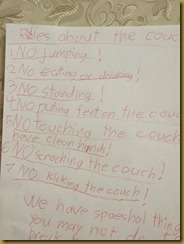 Rules about the couch
1 NO jumping!
2 NO eating or drinking!
3 NO standing!
4 NO puting feet on the couch
5 NO touching the couch
have clean hands!
6 NO wrecking the couch!
7 NO kicking the couch!
We have speachal things
you may not do
break